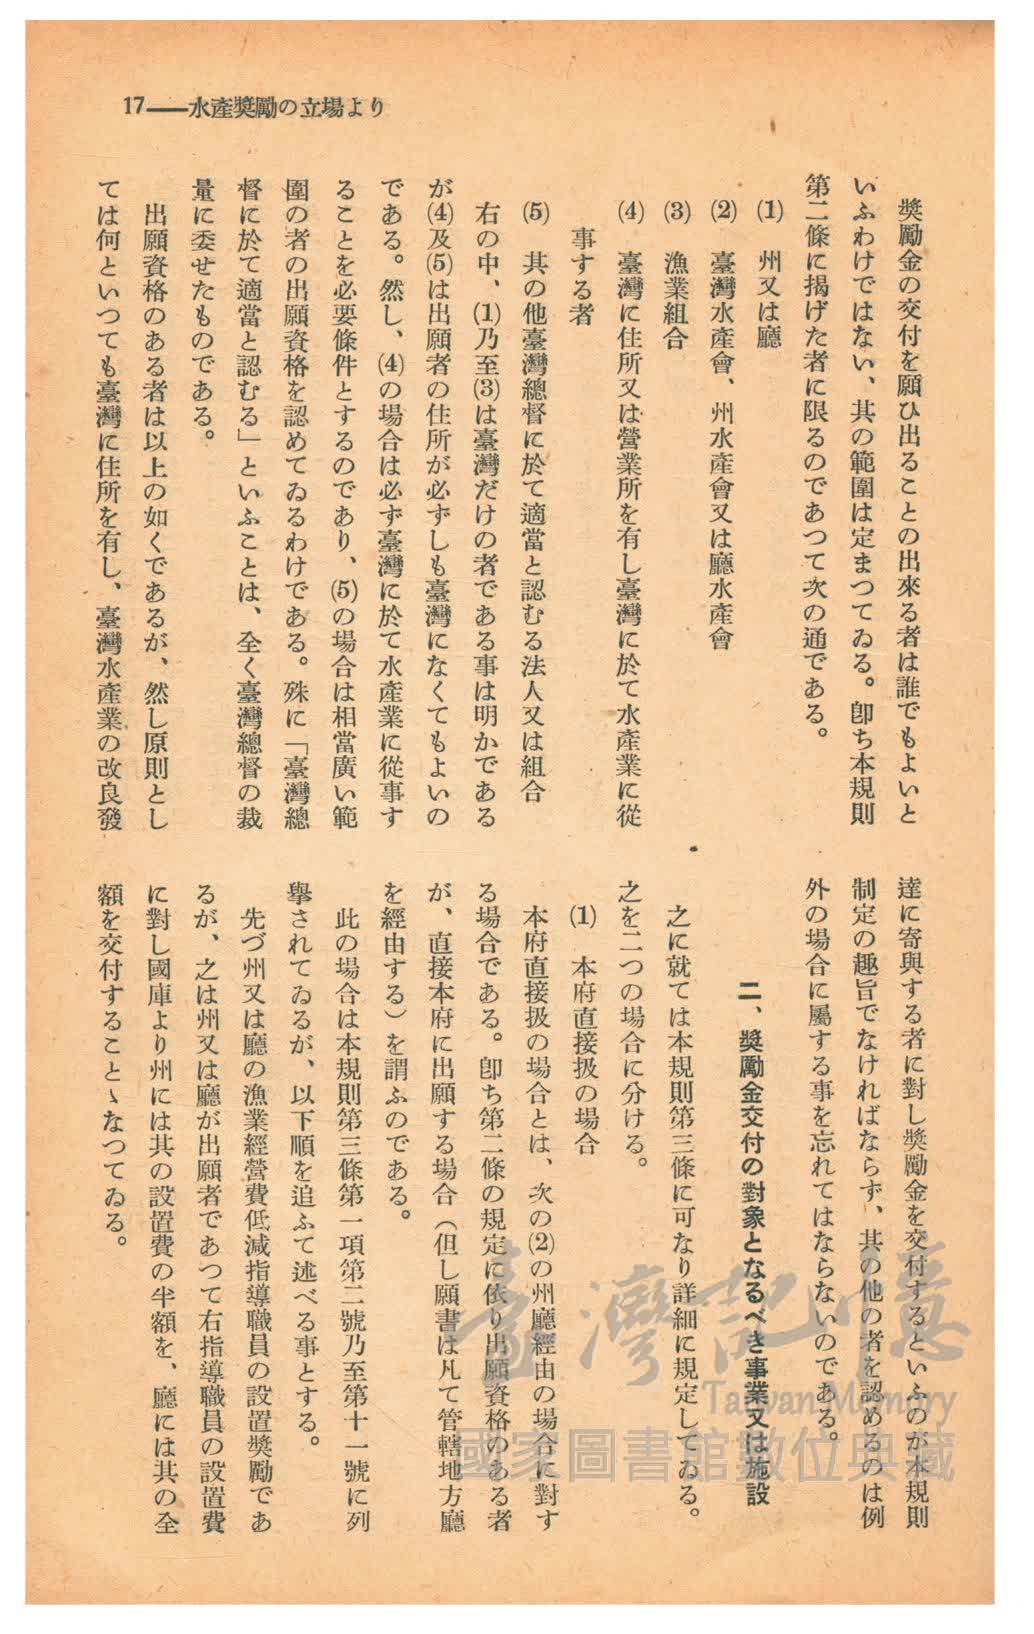 17——水產獎勵の立場より
獎勵金の交付を願ひ出ることの出來る者は誰でもよいと
いふわけではない、其の範圍は定まつてゐる。卽ち本規則
第二條に揭げた者に限るのであつて次の通である。
(1) 州又は廳
(2) 臺灣水產會、州水產會又は廳水產會
(3) 漁業組合
(4) 臺灣に住所又は營業所を有し臺灣に於て水產業に從
事する者
(5) 其の他臺灣總督に於て適當と認むる法人又は組合
右の中、(1)乃至(3)は臺灣だけの者である事は明かである
が(4)及(5)は出願者の住所が必ずしも臺灣になくてもよいの
である。然し、(4)の場合は必ず臺灣に於て水產業に從事す
ることを必要條件とするのであり、(5)の場合は相當廣い範
圍の者の出願資格を認めてゐるわけである。殊に「臺灣總
督に於て適當と認むる」といふことは、全く臺灣總督の裁
量に委せたものである。
出願資格のある者は以上の如くであるが、然し原則とし
ては何といつても臺灣に住所を有し、臺灣水產業の改良發
達に寄與する者に對し獎勵金を交付するといふのが本規則
制定の趣旨でなければならず、其の他の者を認めるのは例
外の場合に屬する事を忘れてはならないのである。
二、獎勵金交付の對象となるべき事業又は施設
之に就ては本規則第三條に可なり詳細に規定してゐる。
之を二つの場合に分ける。
(1) 本府直接扱の場合
本府直接扱の場合とは、次の(2)の州廳經由の場合に對す
る場合である。卽ち第二條の規定に依り出願資格のある者
が、直接本府に出願する場合（但し願書は凡て管轄地方廳
を經由する）を謂ふのである。
此の場合は本規則第三條第一項第二號乃至第十一號に列
擧されてゐるが、以下順を追ふて述べる事とする。
先づ州又は廳の漁業經營費低減指導職員の設置獎勵であ
るが、之は州又は廳が出願者であつて右指導職員の設置費
に對し國庫より州には其の設置費の半額を、廳には其の全
額を交付することゝなつてゐる。
臺灣記憶
Taiwan Memory
國家圖書館數位典藏